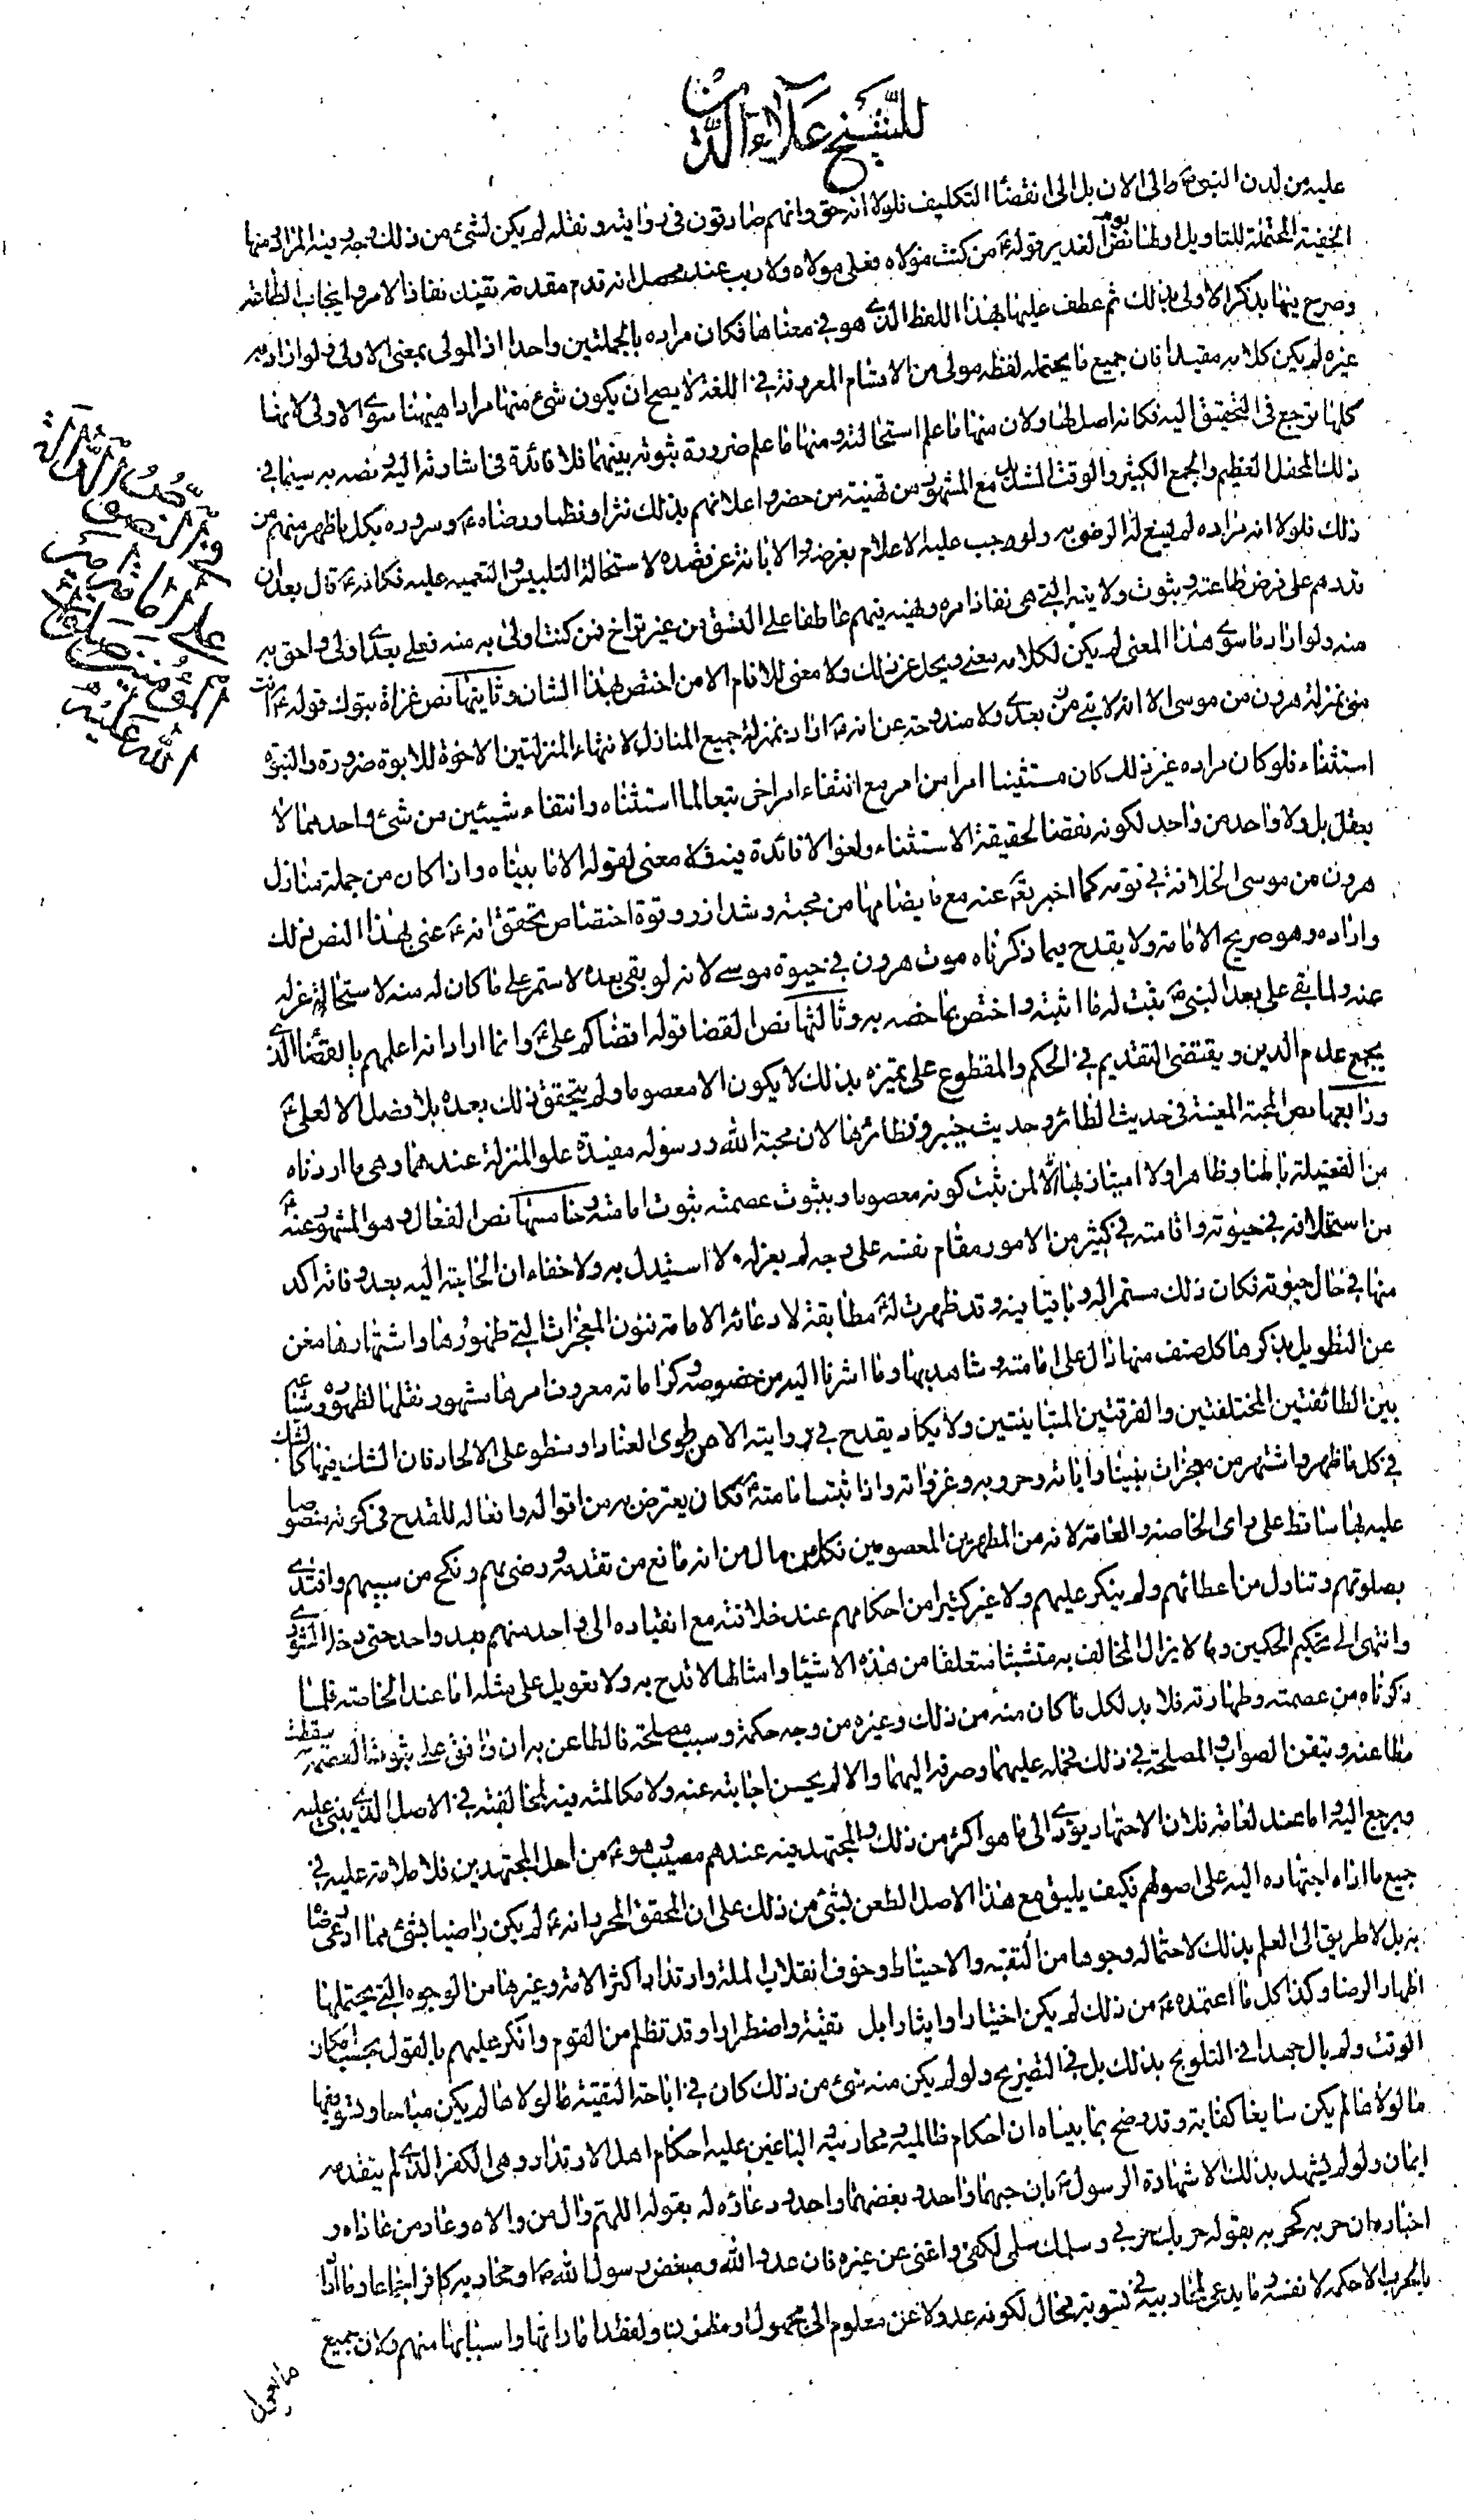 للشيخ علاء الدين
عليه من لدن النبي ص والى الان بل الى انقضاء التكليف فلولا انه حق وانهم صادقون في روايته ونقله لم يكن لشئ من ذلك وجه فيه المراد منها
الخفية المحتملة للتاويل اولها نص يوم الغدير قوله ع من كنت مولاه فعلى مولاه ولا ريب عند محصل انه قدم مقدمة تفيد نفاذ الامر وايجاب الطاعة
وصرح فيها بذكر الاولى بذلك ثم عطف عليها بهذا اللفظ الذي هو في معناها فكان مراده بالجملتين واحدا اذ المولى بمعنى الاولى فلو اراد به
غيره لم يكن كلامه مفيدا فان جميع ما يحتمله لفظه مولى من الاقسام المعروفة في اللغة لا يصح ان يكون شئ منها مرادا هيهنا سوى الاولى لانها
كلها ترجع في التحقيق اليه فكانه اصل لها ولان منها ما علم استحالته ومنها ما علم ضرورة ثبوته بينهما فلا فائدة في اشارته اليه ونصه به سيما في
ذلك المحفل العظيم والجمع الكثير والوقت مع المشهور من تهنية من حضر واعلانهم بذلك نثرا ونظما ورضاه ع وسروره بكل ما ظهر منهم من
ذلك فلولا انه مراده لم يسغ له الرضى به ولوجب عليه الاعلام بغرضه والابانة عن قصده لاستحالة التلبيس والتعمية عليه فكانه ع قال بعد ان
قدمهم على فرض طاعته وثبوت ولايته التي هى نفاذ امره ونهيه فيهم عاطفا على النسق من غير تراخ فمن كنت اولى به منه فعلي بعدي اولى واحق به
منه ولو اراد ما سوى هذا المعنى لم يكن لكلامه معنى ويجل عن ذلك ولا معنى للامام الا من اختص بهذا الشان وثانيتها نص غزاة تبوك قوله ع انت
منى بمنزلة هرون من موسى الا انه لا نبي من بعدى ولا مندوحة عن انه ص اراد بمنزلة جميع المنازل لانتهاء المنزلتين الاخوة للابوة ضرورة والنبوة
استثناء فلو كان مراده غير ذلك كان مستثنيا امرا من امر مع انتفاء امر اخر تبعا لما استثناه وانتفاء شيئين من شئ واحد مما لا
يعقل بل ولا واحد من واحد لكونه نقضا لحقيقة الاستثناء ولغوا لا فائدة فيه فلا معنى لقوله الا ما بيناه واذا كان من جملة منازل
هرون من موسى الخلافة في قومه كما اخبر تع عنه مع ما يضامها من محبته وشد ازر وقوة اختصاص تحقق انه ع عنى بهذا النص ذلك
واراده وهو صريح الامامة ولا يقدح فيما ذكرناه موت هرون في حيوة موسى لانه لو بقى بعده لاستمر على ما كان له منه لاستحالة عزله
عنه ولما بقى على بعد النبي ص ثبت له ما اثبته واختص بما خصه به وثالثها نص القضا قوله اقضاكم على ع وانما اراد انه اعلمهم بالقضا الذي
يجمع علوم الدين ويقتضى التقديم في الحكم والمقطوع على تميزه بذلك لا يكون الا معصوما ولم يتحقق ذلك بعده بلا فصل الا لعلى ع
ورابعها نص المحبة المعينة في حديث الطائر وحديث خيبر ونظائرها لان محبة الله ورسوله مفيدة علو المنزلة عندهما وهى ما اردناه
من الفضيلة باطنا وظاهرا ولا امتياز بها الا لمن ثبت كونه معصوما وبثبوت عصمته ثبوت امامته وخامستها نص الفعال وهو المشهور عنه ع
من استخلافه في حيوته واقامته في كثير من الامور مقام نفسه على وجه لم يعزله ولا استبدل به ولا خفاء ان الحاجة اليه بعد وفاته اكد
منها في حال حيوته فكان ذلك مستمرا له وباقيا فيه وقد ظهرت له ع مطابقة لادعائه الامامة فنون المعجزات التي ظهورها واشتهارها مغن
عن التطويل بذكرها كل صنف منها دال على امامته وشاهد بها وما اشرنا اليه من خصوصه وكراماته معروف امرها مشهور نقلها لظهوره وشياعه
بين الطائفتين المختلفتين والفرقتين المتباينتين ولا يكاد يقدح في روايته الا من طوى العناد او سطو على الالحاد فان الشك فيها كالشك
في كل ما ظهر واشتهر من معجزات نبينا واياته وحروبه وغزواته واذا ثبتت امامته ع فكان يعترض به من اقواله وافعاله للقدح في كونه منصوصا
عليه بها ساقط على راى الخاصة والعامة لانه من المطهرين المعصومين فكل من مال من انه مانع من تقدمه ورضى بهم ونكح من سبيهم واقتدى
بصلوتهم وتناول من اعطائهم ولم ينكر عليهم ولا غير كثيرا من احكامهم عند خلافته مع انقياده الى واحد منهم بعد واحد حتى دخل الشورى
وانتهى الى تحكيم الحكمين وما لا يزال المخالف به متشبثا متعلقا من هذه الاشيا وامثالها لا قدح به ولا تعويل على مثله اما عند الخاصة فلما
ذكرناه من عصمته وطهارته فلا بد لكل ما كان منه من ذلك وغيره من وجه حكمة وسبب مصلحة فالطاعن به ان وافق على ثبوت العصمة سقطت
مطاعنه وتيقن الصواب والمصلحة في ذلك فحمله عليهما وصرفه اليهما والا لم يحسن اجابته عنه ولا مكالمته فيه لمخالفته في الاصل الذي يبنى عليه
ويرجع اليه واما عند العامة فلان الاجتهاد يؤدى الى ما هو اكثر من ذلك والمجتهد فيه عندهم مصيب وهو ع من اهل المجتهدين فلا ملامة عليه في
جميع ما اداه اجتهاده اليه على اصولهم فكيف يليق مع هذا الاصل الطعن بشئ من ذلك على ان المحقق المحرر انه ع لم يكن راضيا بشئ مما ادعى رضاه
به بل لا طريق الى العلم بذلك لاحتماله وجوها من التقية والاحتياط وخوف انقلاب الملة وارتداد اكثر الامة وغيرها من الوجوه التي يحتملها
اظهار الرضا وكذا كل ما اعتمده ع من ذلك لم يكن اختيارا وايثارا بل تقية واضطرارا وقد تظلم من القوم وانكر عليهم بالقول بحسب امكان
الوقت ولم يال جهدا في التلويح بذلك بل في التصريح ولو لم يكن منه شئ من ذلك كان في اباحة التقية ما لولاها لم يكن مباحا وتسويغها
ما لولاها لم يكن سايغا كفاية وقد وضح بما بيناه ان احكام ظالميه ومحاربيه والباغين عليه احكام اهل الارتداد وهى الكفر الذي لم يتقدمه
ايمان ولو لم يشهد بذلك الا شهادة الرسول ص بان حبهما واحد وبغضهما واحد ودعاؤه له بقوله اللهم وال من والاه وعاد من عاداه و
اخباره ان حربه كحربه بقوله حربك حربي وسلمك سلمي لكفى واغنى عن غيره فان عدو الله ومبغض رسول الله ص ومحاربه كافر اجماعا وما اراد
بالحرب الا حكمه لا نفسه وما يدعى لمحاربيه في توبته فمحال لكونه عدولا عن معلوم الى مجهول او مظنون ولفقد اماراتها واسبابها منهم ولان جميع